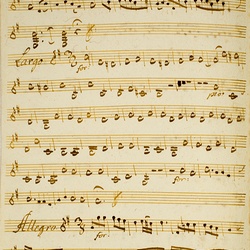 Largo
for:
pia:
for:
Allegro
for: